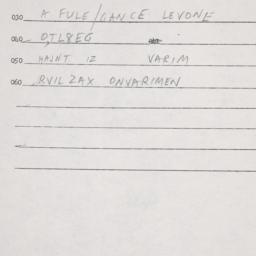 030 A FULE/GANCE LEVONE
040 OTL8EG
050 HAUNT IZ VARIM
060 RVIL ZAX ONVARIMEN